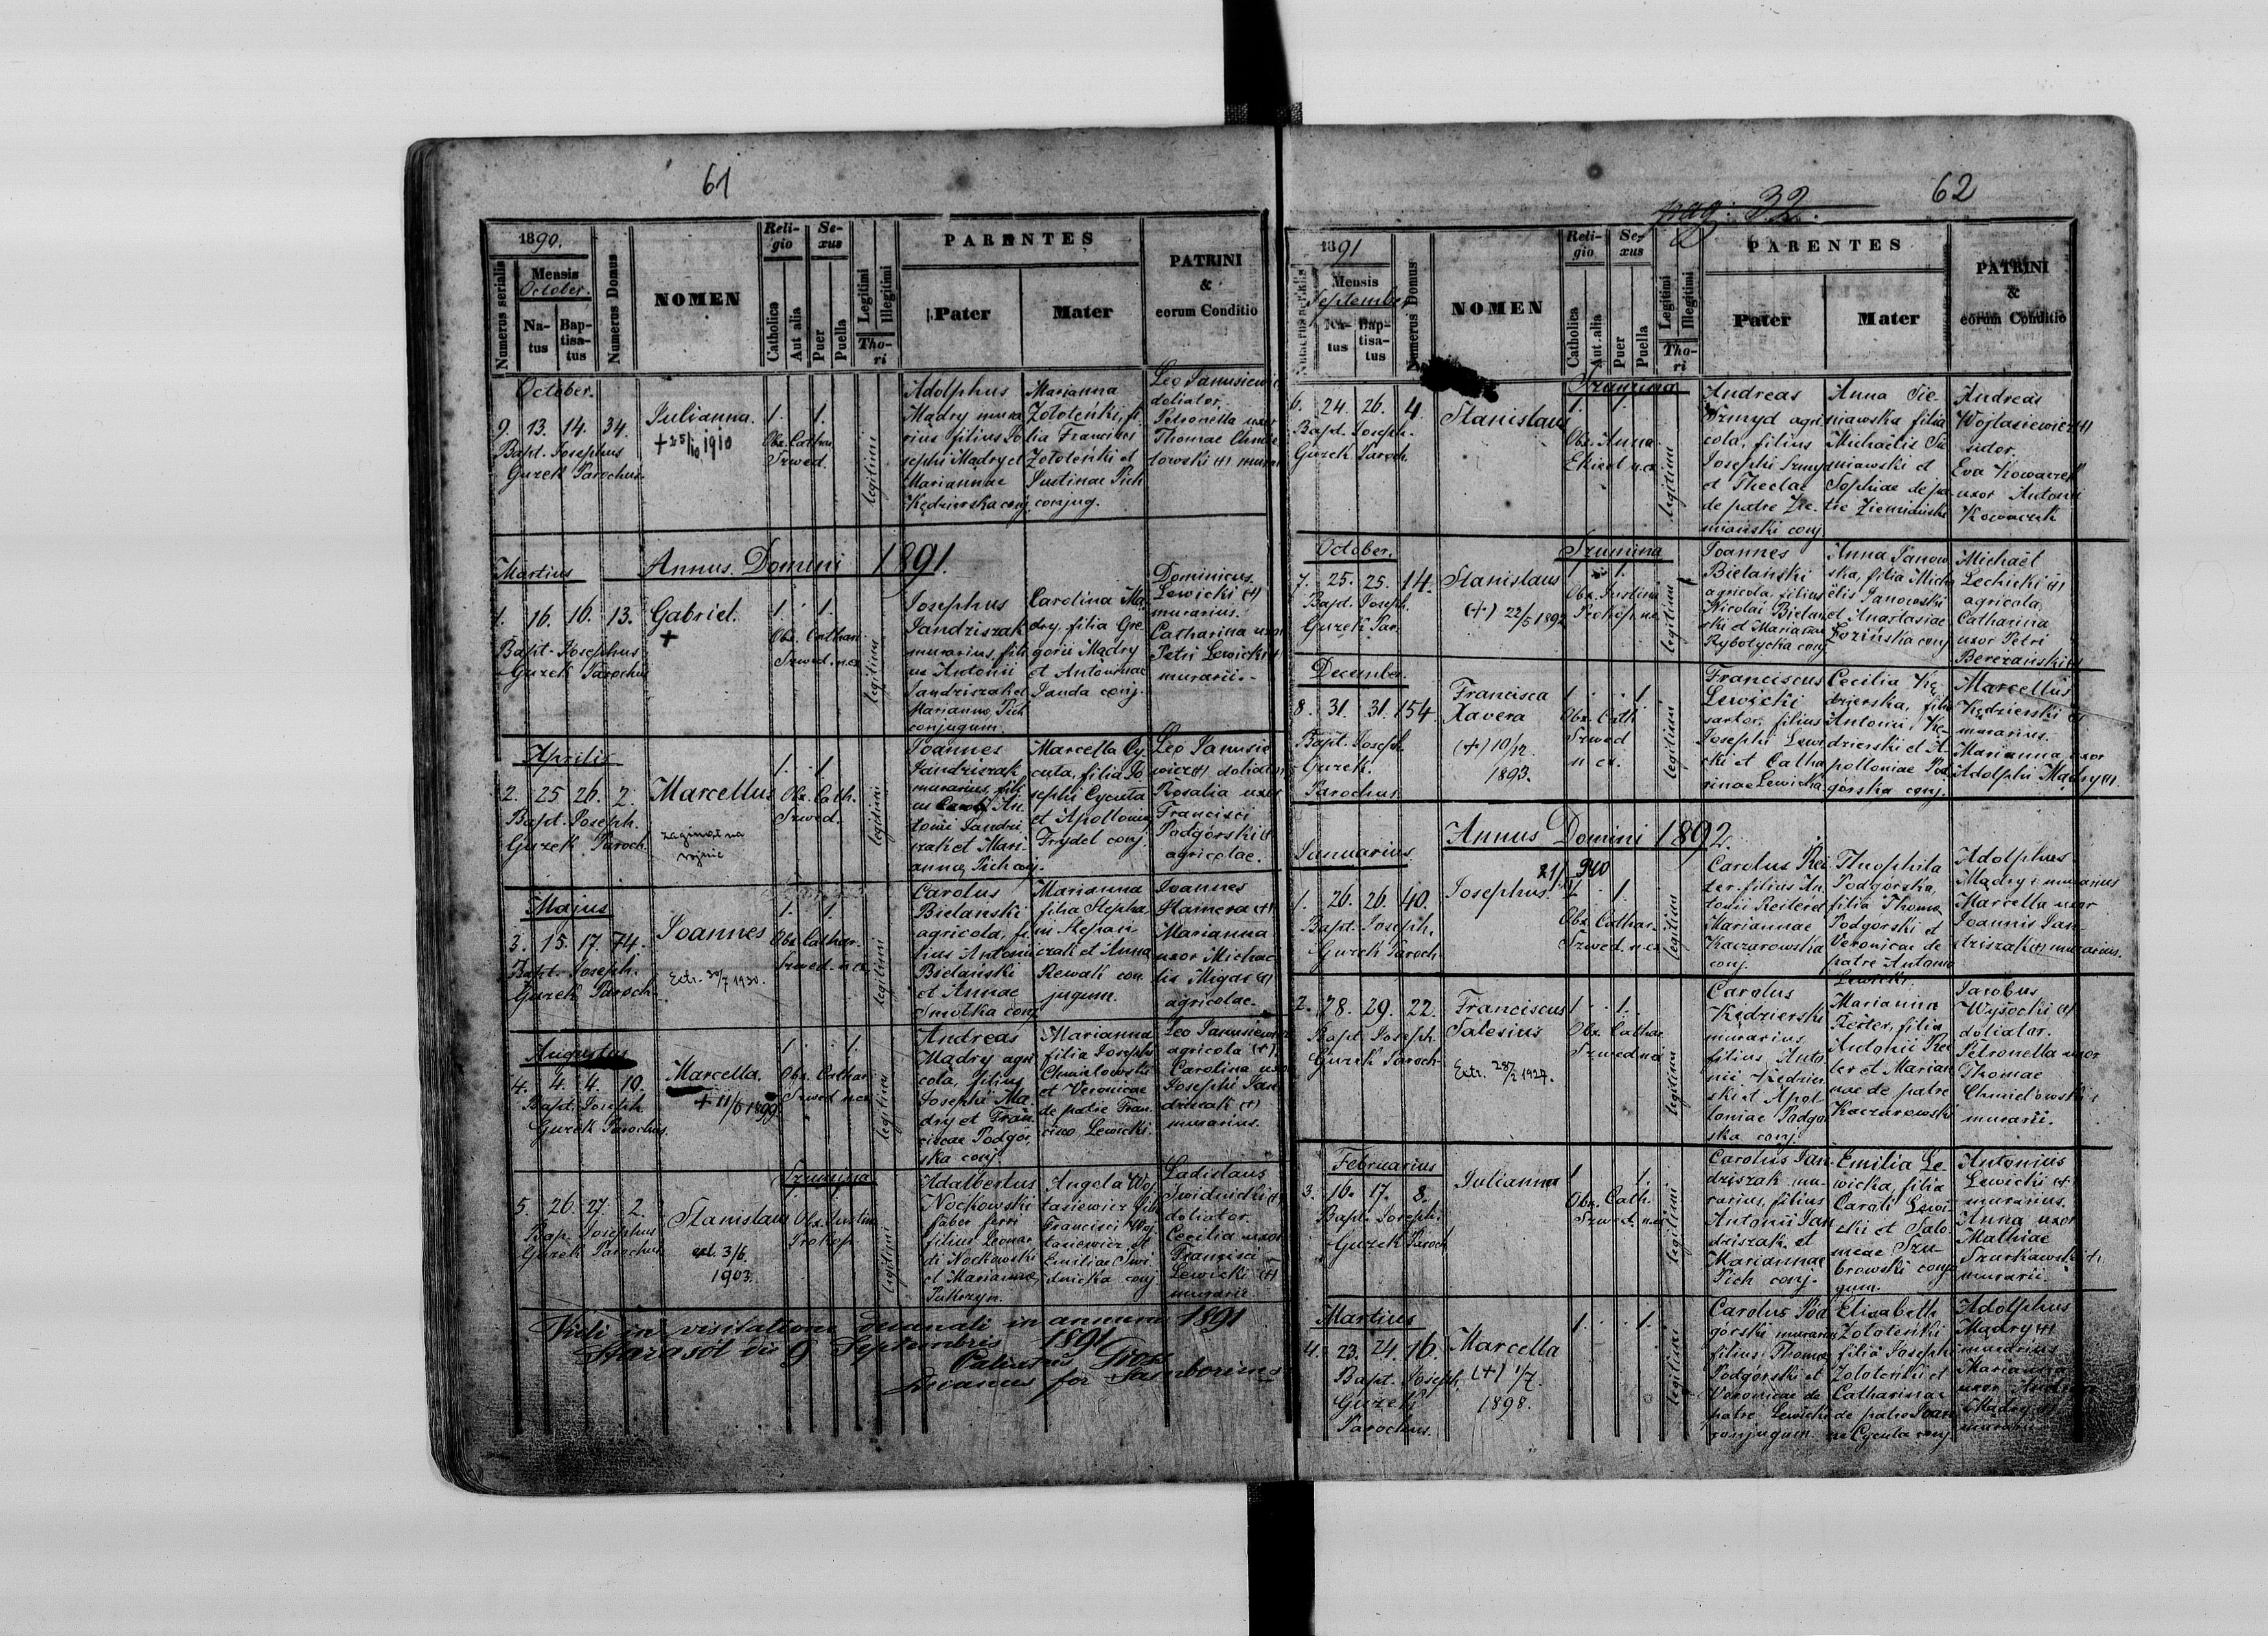 61
1890.
Mensis
October.
Numerus serialis
Na-
tus
Bap-
tisa-
tus
Numerus Domus
NOMEN
Reli-
gio
Catholica
Aut alia
Se-
xus
Puer
Puella
Legitimi
Illegitimi
Tho-
ri
PARENTES
Pater
Mater
PATRINI
&
eorum Conditio
October.
9. 13. 14. 34.
Bapt. Josephus
Gurek Parochus.
Julianna.
+ 25/10 1910
1. 1.
Obs. Cathar.
Szwed.
legitimi
Adolphus
Mądry mura
rius filius Jo
sephi Mądry et
Mariannae
Kędzierska conj.
Marianna
Zołoteńki, fi
lia Francisci
Zołoteńki et
Justinae Pich
conjug.
Leo Janusiewicz
doliator.
Petronella uxor
Thomae Chmie
lowski (+) murar
Annus Domini 1891.
Martius
1. 16. 16. 13.
Bapt. Josephus
Gurek Parochus
Gabriel.
+
1. 1.
Obs. Cathar.
Szwed. n. ex.
legitimi
Josephus
Jandziszak
murarius, fili
us Antonii
Jandziszak et
Marianna Pich
conjugum.
Carolina Mą
dry, filia Gre
gorii Mądry
et Antoninae
Janda conj.
Dominicus
Lewicki (+)
murarius.
Catharina uxor
Petri Lewicki (+)
murarii.
Aprilis
2. 25. 26. 2.
Bapt. Joseph.
Gurek Paroch.
Marcellus
zaginął na
wojnie
1. 1.
Obs. Cath.
Szwed.
legitimi
Joannes
Jandziszak
murarius, fili
us An
tonii Jandzi
szak et Mari
anna Pich conj.
Marcella Cy
cuta, filia Jo
sephi Cycuta
et Apollonia
Frydel conj.
Leo Janusie
wicz (+) doliator
Rosalia uxor
Francisci
Podgórski (+)
agricolae.
Majus
3. 15. 17. 74.
Bapt. Joseph.
Gurek Paroch.
Joannes
Extr. 30/7 1930.
1. 1.
Obs. Cathar.
Szwed. n. ex.
legitimi
Carolus
Bielanski
agricola, fi
lius Antonii
Bielański
et Annae
Smolka conj.
Marianna
filia Stepha
ni Stepan
czak et Anna
Rewak con
jugum.
Joannes
Hamera (+)
Marianna
uxor Michae
lis Migas (+)
agricolae.
Augustus
4. 4. 4. 19.
Bapt. Joseph.
Gurek Parochus.
Marcella.
+ 11/6 1899
1. 1.
Obs. Cathar.
Szwed n. ex.
legitimi
Andreas
Mądry agri
cola, filius
Josephi Mą
dry et Fran
ciscae Podgór
ska conj.
Marianna
filia Josephi
Chmielowski
et Veronicae
de patre Fran
cisco Lewicki.
Leo Janusiewicz
agricola (+)
Carolina uxor
Josephi Jan
dziszak (+)
murarius.
Szumina
5. 26. 27. 2.
Bap. Josephus
Gurek Parochus
Stanislaus
ext. 3/6
1903.
1. 1.
Obs. Justina
Prokop.
legitimi
Adalbertus
Nockowski
faber ferri
filius Leonar
di Nockowski
et Marianna
Pukszyn.
Angela Woj
tasiewicz filia
Francisci Woj
tasiewicz et
Emiliae Świ
dnicka conj
Ladislaus
Świdnicki (+)
doliator.
Cecilia uxor
Francisci
Lewicki (+)
murarii
Vidi in visitatione decanali in annum 1891
Starasól die 9 Septembris 1891
Decanus for Samboriens
pag. 32.
62
1891
Mensis
September
Na-
tus
Bap-
tisa-
tus
Numerus Domus
NOMEN
Reli-
gio
Catholica
Aut. alia
Se-
xus
Puer
Puella
Legitimi
Illegitimi
Tho-
ri
PARENTES
Pater
Mater
PATRINI
&
eorum Conditio
Szumina
6. 24. 26. 4.
Bapt. Joseph.
Gurek Paroch.
Stanislaus
1. 1.
Obs. Anna
Ekiert n. ex.
legitimi
Andreas
Szmyd agri
cola, filius
Josephi Szmyd
et Theclae
de patre Zie
miański conj
Anna Sie
niawska filia
Michaelis Sie
niawski et
Sophiae de pa
tre Ziemiański
Andreas
Wojtasiewicz (+)
sutor.
Eva Kowaczek
uxor Antonii
Kowaczek
October.
Szumina
7. 25. 25. 14.
Bapt. Joseph.
Gurek Par.
Stanislaus
(+) 23/5 1892
1.
Obs. Justina
Prokop. n. ex.
legitimi
Joannes
Bielański
agricola, filius
Nicolai Bielan
ski et Mariannae
Rybotycka conj
Anna Janow
ska, filia Micha
ëlis Janowski
et Anastasiae
Łozińska conj
Michaël
Lechicki (+)
agricola,
Catharina
uxor Petri
Berezanski (+)
December.
8. 31. 31. 154
Bapt. Joseph.
Gurek.
Parochus.
Francisca
Xavera
(+) 10/12.
1893.
1 . . 1
Obs. Cath.
Szwed
n ex.
legitimi
Franciscus
Lewicki
sartor, filius
Josephi Lewi
cki et Catha
rinae Lewicka
Cecilia Kę
dzierska, filia
Antonii Kę
dzierski et A
polloniae Pod
górska conj.
Marcellus
Kędzierski (+)
murarius.
Marianna uxor
Adolphi Mądry (+).
Annus Domini 1892.
Januarius.
1. 26. 26. 40.
Bapt. Joseph.
Gurek Paroch
Josephus.
21/ 940
1. 1.
Obs. Cathar.
Szwed. n. ex.
legitimi
Carolus Rei
ter. filius An
tonii Reiter et
Mariannae
Kaczarowska
conj.
Theophila
Podgórska,
filia Thoma
Podgorski et
Veronicae de
patre Antonio
Lewicki.
Adolphus
Mądry murarius
Marcella uxor
Joannis Jan
dziszak (+) murarius.
2. 28. 29. 22.
Bapt. Joseph.
Gurek Paroch
Franciscus
Salesius
Extr. 28/2 1927.
1. 1.
Obs. Cathar
Szwed n ex
legitimi
Carolus
Kędzierski
murarius
filius Anto
nii Kędzier
ski et Apol
loniae Podgór
ska conj.
Marianna
Reiter, filia
Antonii Rei
ter et Marian
nae de patre
Kaczarowski
Jacobus
Wysocki (+)
doliator.
Petronella uxor
Thomae
Chmielowski
murarii.
Februarius
3. 16. 17. 8.
Bapt. Joseph.
Gurek Paroch
Julianna
1 1.
Obs. Cath.
Szwed. n. ex
legitimi
Carolus Jan
dziszak mu
rarius, filius
Antonii Jan
dziszak et
Mariannae
Pich conj.
Emilia Le
wicka, filia
Caroli Lewi
cki et Salo
meae Szu
browski conju
gum.
Antonius
Lewicki (+)
murarius.
Anna uxor
Mathiae
Szurkawski (+)
murarii.
Martius
4. 23. 24. 16.
Bapt. Joseph.
Gurek
Parochus.
Marcella
(+) 1/7.
1898.
1. . . 1.
legitimi
Carolus Pod
górski murarius
filius Thoma
Podgórski et
Veronicae de
patre Lewicki
conjugum.
Elisabeth
Zołoteńki
filia Josephi
Zołoteńki et
Catharinae
de patre Joan
ne Cycuta conj
Adolphus
Mądry (+)
murarius
Marianna
uxor Andreae
Mądry (+)
murarii